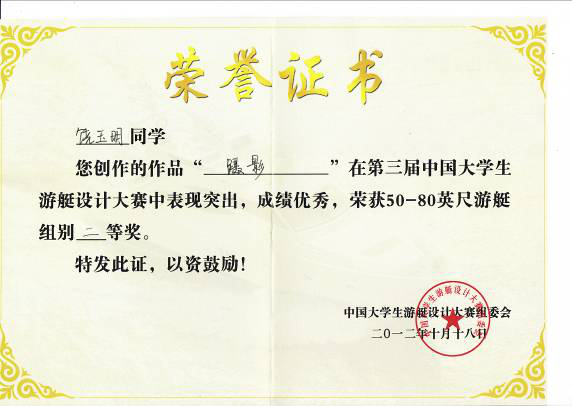 荣誉证书
饶玉明同学
您创作的作品“ 隐影 ”在第三届中国大学生
游艇设计大赛中表现突出，成绩优秀，荣获50-80英尺游艇
组别 二 等奖。
特发此证，以资鼓励！
中国大学生游艇设计大赛组委会
二〇一二年十月十八日